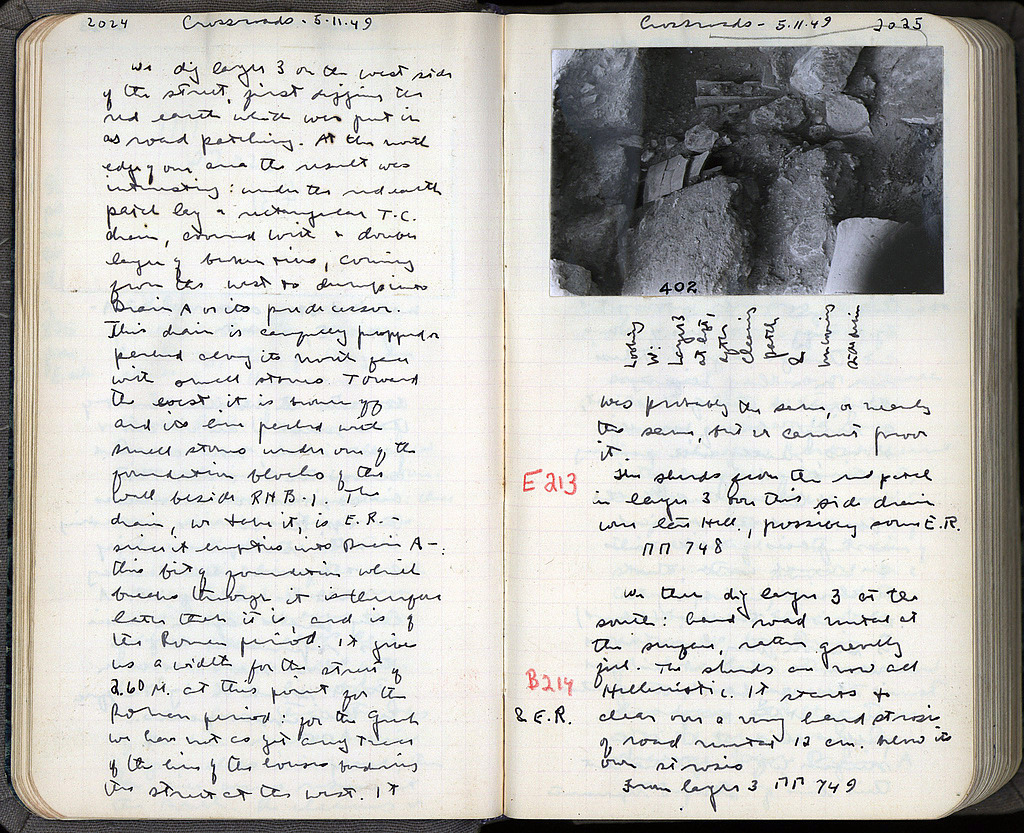 2024 Crossroads - 5.11.49
We dig layer 3 on the west side
of the street, first digging the
red earth which was put in
as road patching. At the north
edge of our area the result was
interesting: under the red earth
patch lay a rectangular T.C.
drain, covered with a double
layer of broken tiles, coming
from the west to dump into
Drain A or its predecessor.
This drain is carefully propped or
packed along its north face
with small stones. Toward
the east it is broken off
and its line packed with
small stones under one of the
foundation blocks of the
wall beside RHB-1. The
drain, we take it, is E.R. -
since it empties into Drain A -;
this bit of foundation which
breaks through it is therefore
later than it is and is of
the Roman period. It gives
us a width for the street of
2.60 M. at this point for the
Roman period: for the Greek
we have not as yet any trace
of the line of the houses bordering
the street at the west. It
Crossroads - 5.11.49 2025
402
Looking
W:
Layer 3
at left,
after
cleaning
patch
&
removing
side drain
was probably the same, or nearly
the same, but we cannot prove
it.
E213
The sherds from the red patch
in layer 3 over this side drain
were late Hell., possibly some E.R.
ΠΠ 748
We then dig layer 3 at the
south: hard road metal at
the surface, rather gravelly
fill. The sherds are now all
B214
Hellenistic. It starts to
& E.R.
clear over a very hard strosis
of road metal 12 cm. below its
own strosis
From layer 3 ΠΠ 749